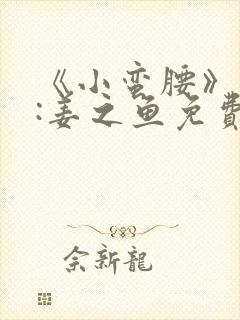 《小蛮腰》
:姜之鱼免費
余新龍